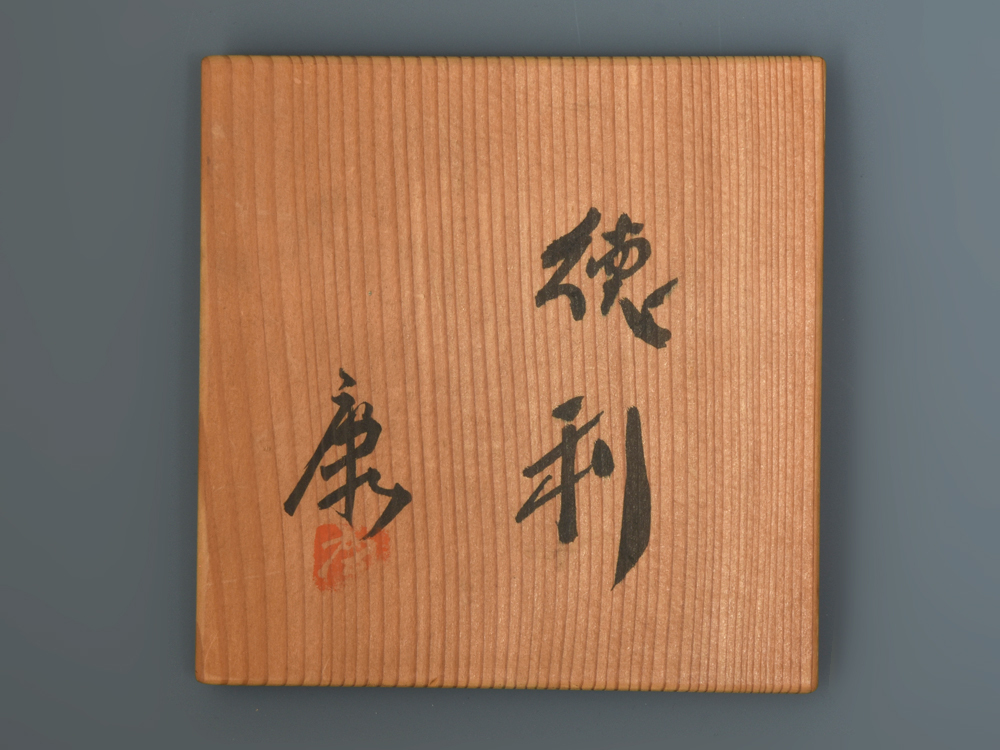 徳利
康